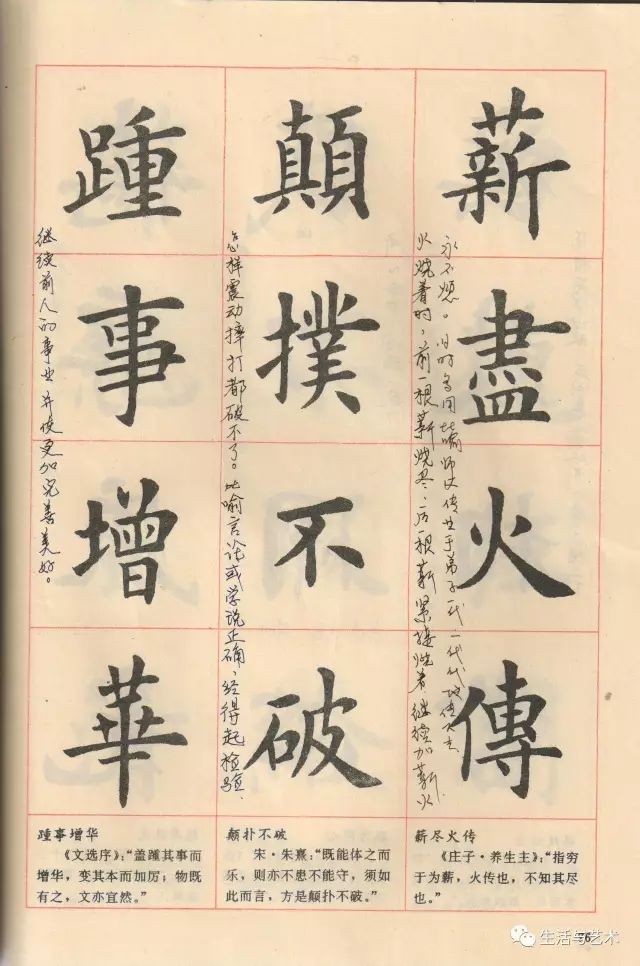 薪盡火傳
火烧着时，前一根薪烧尽，后一根薪紧接烧着，继续加薪火
永不熄。旧时多用比喻师父传业于弟子一代一代代地传下去
顛撲不破
怎样震动摔打都破不了。比喻言论或学说正确，经得起检验。
踵事增華
继续前人的事业并使更加完善美好。
踵事增华
《文选序》：“盖踵其事而
增华，变其本而加厉；物既
有之，文亦宜然。”
颠扑不破
宋·朱熹：“既能体之而
乐，则亦不患不能守，须如
此而言，方是颠扑不破。”
薪尽火传
《庄子·养生主》：“指穷
于为薪，火传也，不知其尽
也。”
76
生活与艺术